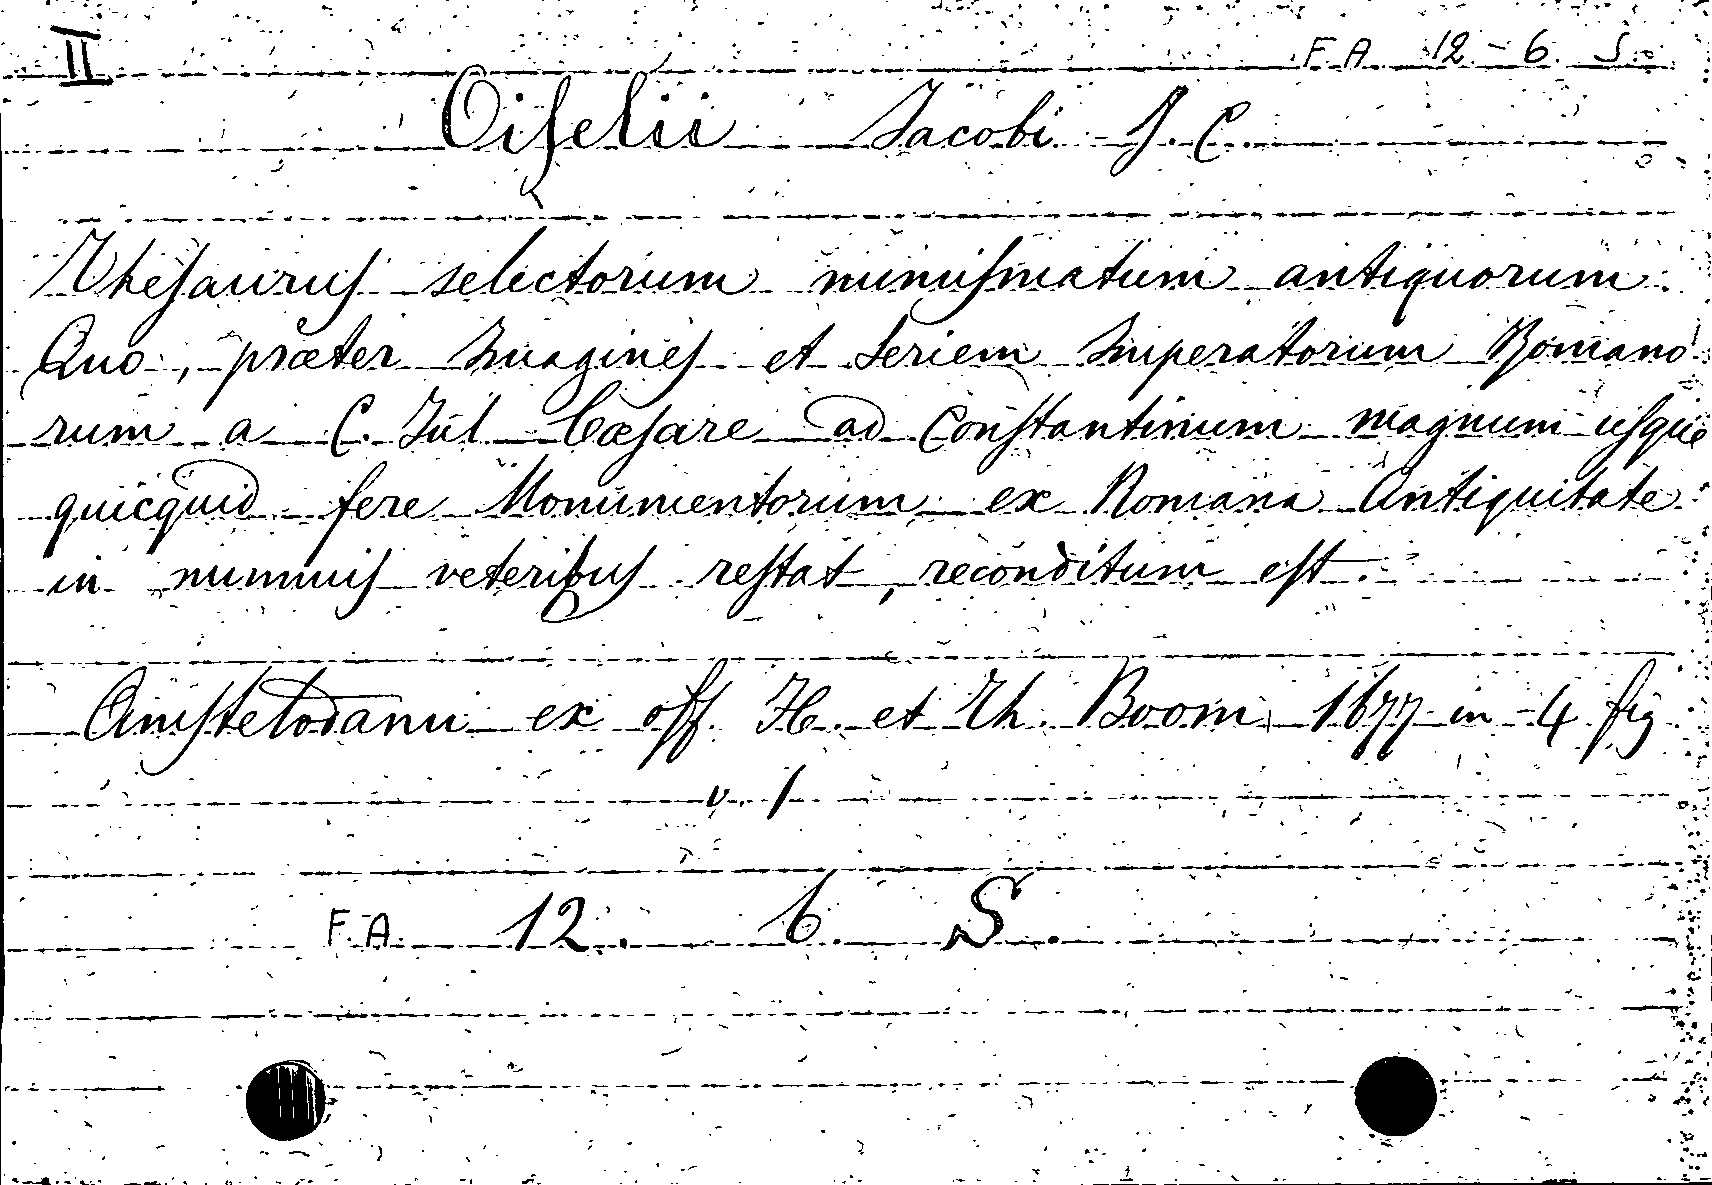 II F.A. 12-6. S.
Oiselii Jacobi J. C.
Thesaurus selectorum numismatum antiquorum.
Quo, præter Imagines et Seriem Imperatorum Romano
rum a C. Jul Cæsare ad Constantinum magnum usque
quicquid fere Monumentorum ex Romana Antiquitate
in nummis veteribus restat, reconditum est.
Amstelodami ex off. H. et Th. Boom 1677 in-4 fig
v. 1
F.A. 12. 6. S.